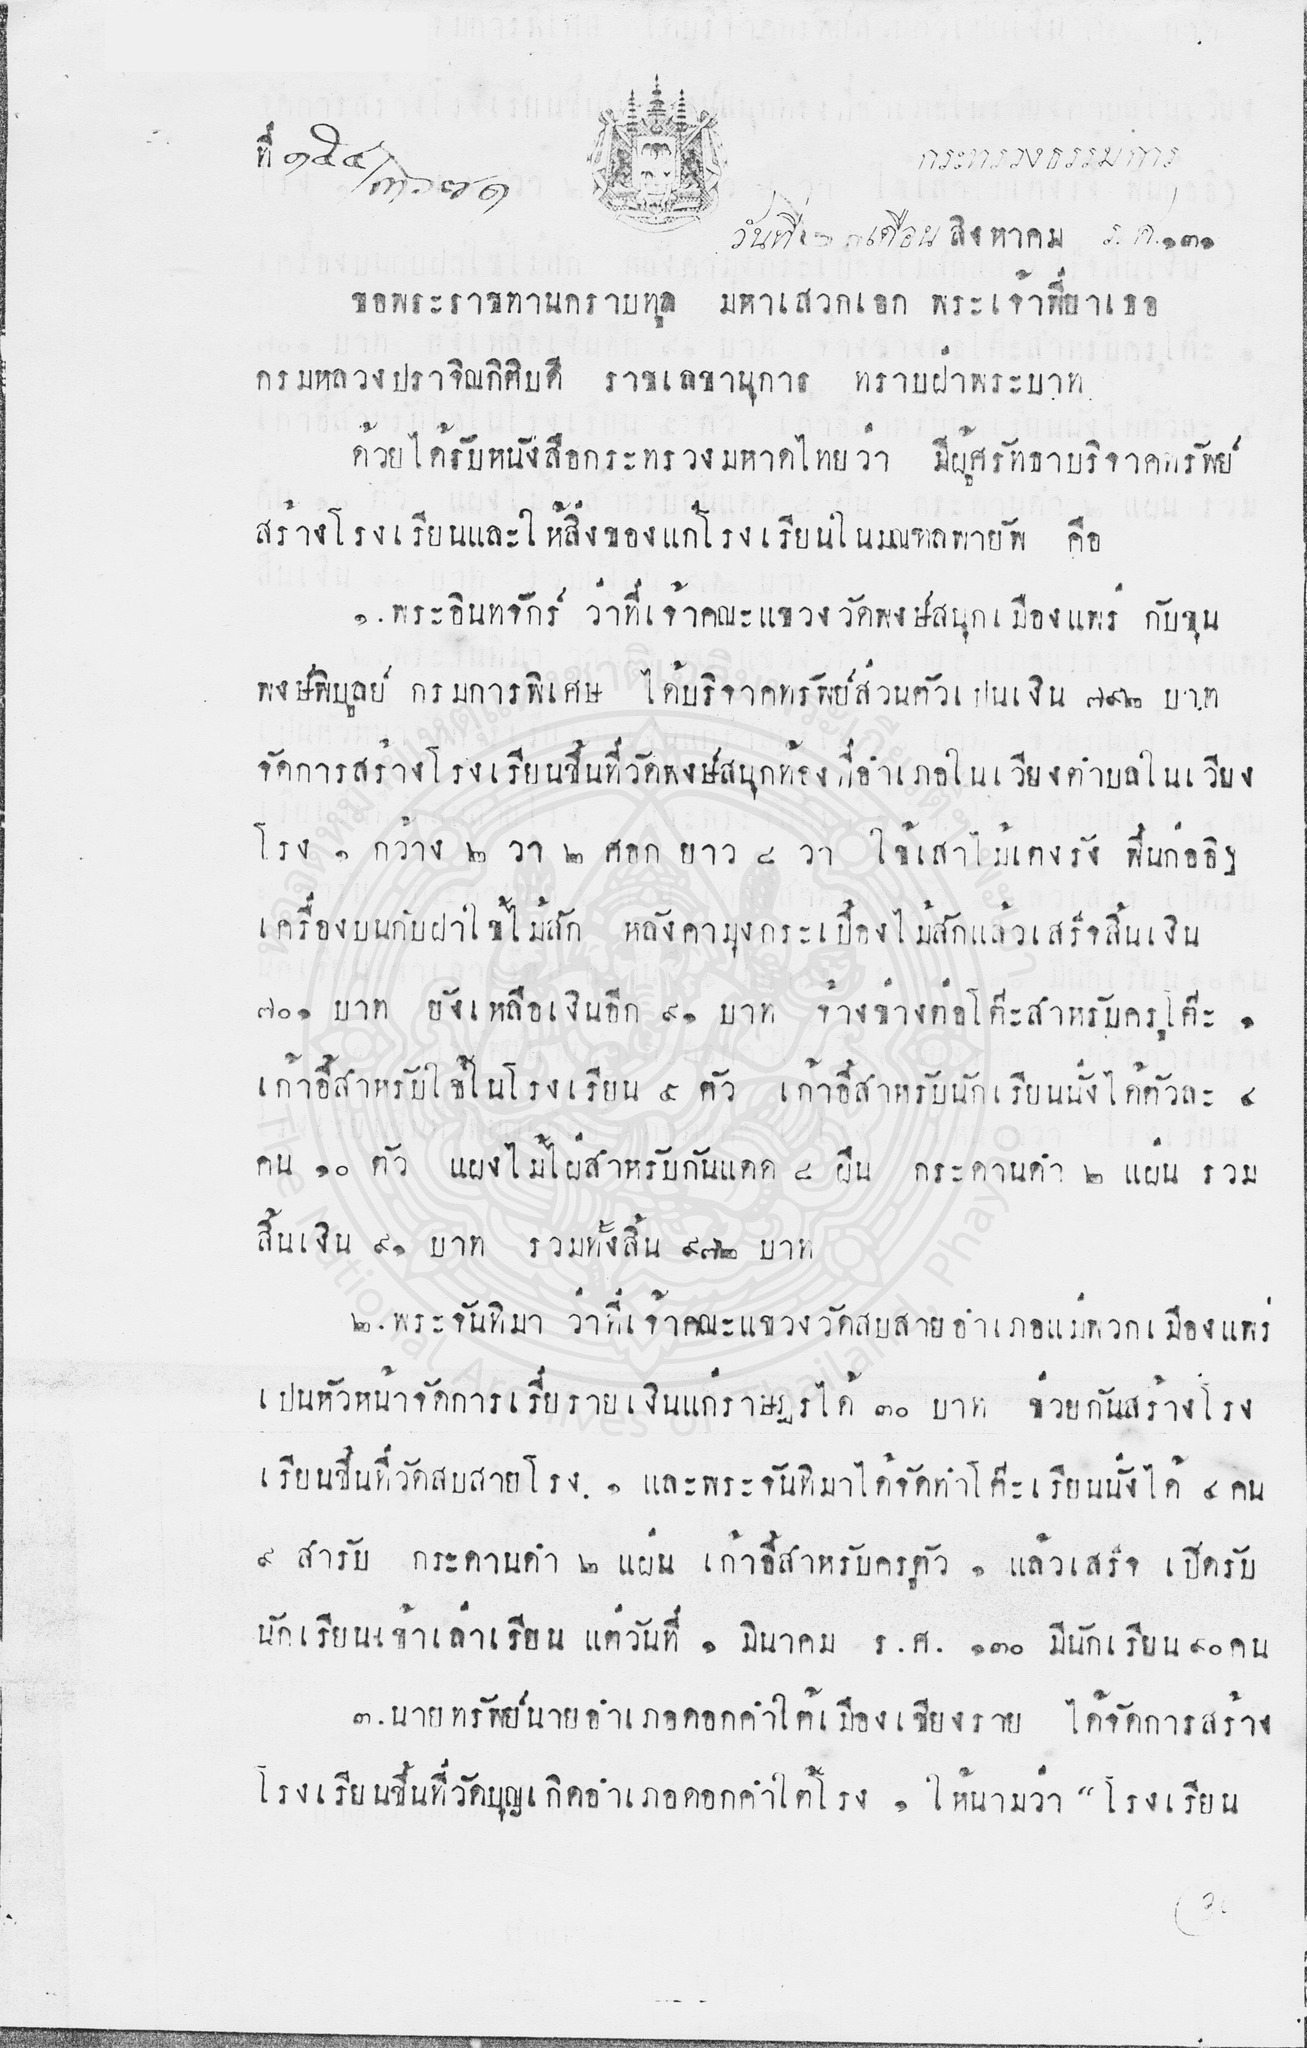 ที่ ๑๕๔/๓๖๗๑
กระทรวงธรรมการ
วันที่ เดือน สิงหาคม ร.ศ. ๑๓๑
ขอพระราชทานกราบทูล มหาเสวกเอก พระเจ้าพี่ยาเธอ
กรมหลวงปราจิณกิติบดี ราชเลขานุการ ทราบฝ่าพระบาท
ด้วยได้รับหนังสือกระทรวงมหาดไทยว่า มีผู้ศรัทธาบริจาคทรัพย์
สร้างโรงเรียนและให้สิ่งของแก่โรงเรียนในมณฑลพายัพ คือ
๑. พระอินทจักร์ ว่าที่เจ้าคณะแขวงวัดพงษ์สนุกเมืองแพร่ กับขุน
พงษ์พิบูลย์ กรมการพิเศษ ได้บริจาคทรัพย์ส่วนตัวเปนเงิน ๗๙๒ บาท
จัดการสร้างโรงเรียนขึ้นที่วัดพงษ์สนุกท้องที่อำเภอในเวียงตำบลในเวียง
โรง ๑ กว้าง ๒ วา ๒ ศอก ยาว ๘ วา ใช้เสาไม้เตงรัง พื้นก่ออิฐ
เครื่องบนกับฝาใช้ไม้สัก หลังคามุงกระเบื้องไม้สักแล้วเสร็จสิ้นเงิน
๗๐๑ บาท ยังเหลือเงินอีก ๙๑ บาท จ้างช่างต่อโต๊ะสำหรับครูโต๊ะ ๑
เก้าอี้สำหรับใช้ในโรงเรียน ๕ ตัว เก้าอี้สำหรับนักเรียนนั่งได้ตัวละ ๔
คน ๑๐ ตัว แผงไม้ไผ่สำหรับกันแดด ๘ ผืน กระดานดำ ๒ แผ่น รวม
สิ้นเงิน ๙๑ บาท รวมทั้งสิ้น บาท
๒. พระจันทิมา ว่าที่เจ้าคณะแขวงวัดสบสายอำเภอแม่พวกเมืองแพร่
เปนหัวหน้าจัดการเรี่ยรายเงินแก่ราษฎรได้ ๓๐ บาท ช่วยกันสร้างโรง
เรียนขึ้นที่วัดสบสายโรง ๑ และพระจันทิมาได้จัดทำโต๊ะเรียนนั่งได้ ๔ คน
๙ สำรับ กระดานดำ ๒ แผ่น เก้าอี้สำหรับครูตัว ๑ แล้วเสร็จ เปิดรับ
นักเรียนเข้าเล่าเรียน แต่วันที่ ๑ มินาคม ร.ศ. ๑๓๐ มีนักเรียน ๙๐ คน
๓. นายทรัพย์นายอำเภอดอกคำใต้เมืองเชียงราย ได้จัดการสร้าง
โรงเรียนขึ้นที่วัดบุญเกิดอำเภอดอกคำใต้โรง ๑ ให้นามว่า "โรงเรียน
หอจดหมายเหตุแห่งชาติเฉลิมพระเกียรติฯ พะเยา
The National Archives of Thailand, Phayao